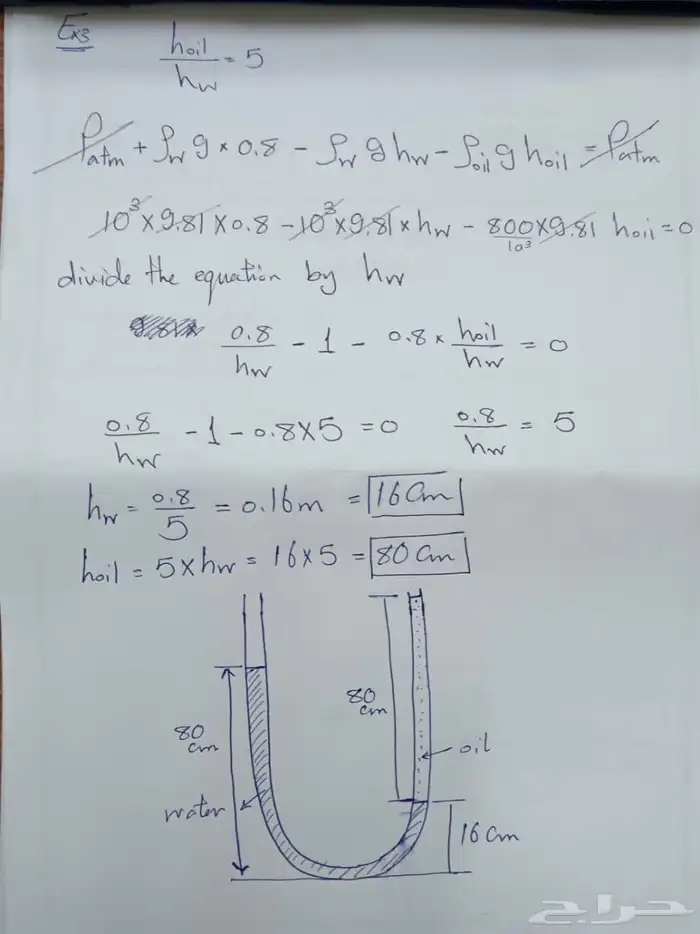 Ex3
hoil / hw = 5
Patm + ρw g × 0.8 - ρw g hw - ρoil g hoil = Patm
10³ × 9.81 × 0.8 - 10³ × 9.81 × hw - 800 × 9.81 / 10³ hoil = 0
divide the equation by hw
0.8 / hw - 1 - 0.8 × hoil / hw = 0
0.8 / hw - 1 - 0.8 × 5 = 0 0.8 / hw = 5
hw = 0.8 / 5 = 0.16m = 16 Cm
hoil = 5 × hw = 16 × 5 = 80 Cm
80 cm
80 cm
oil
water
16 Cm
حراج